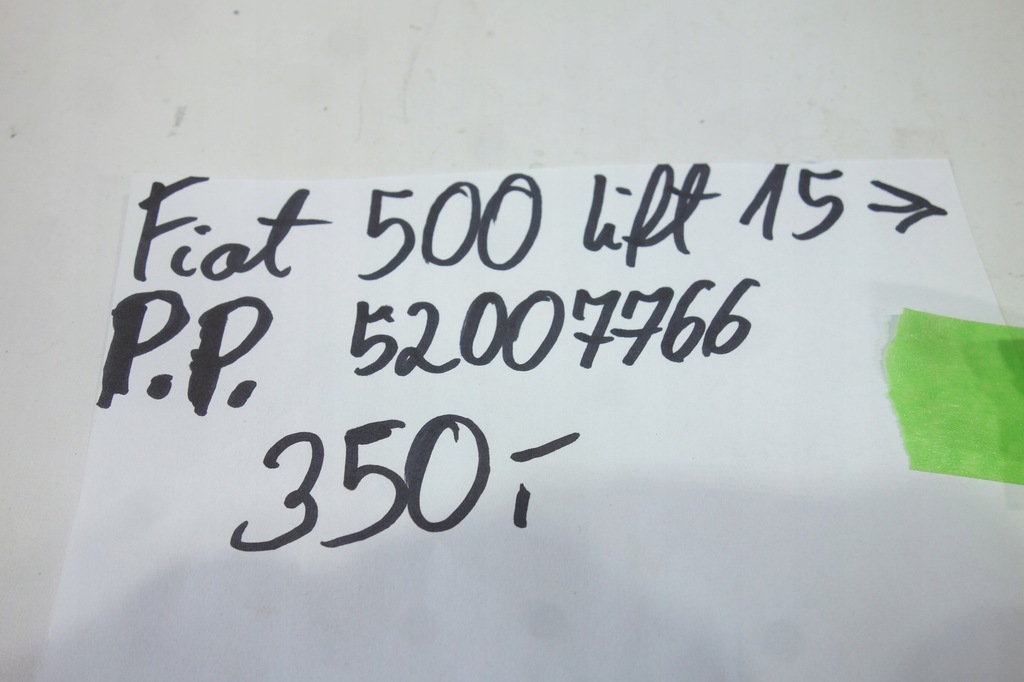 Fiat 500 lift 15 ->
P.P. 52007766
350,-